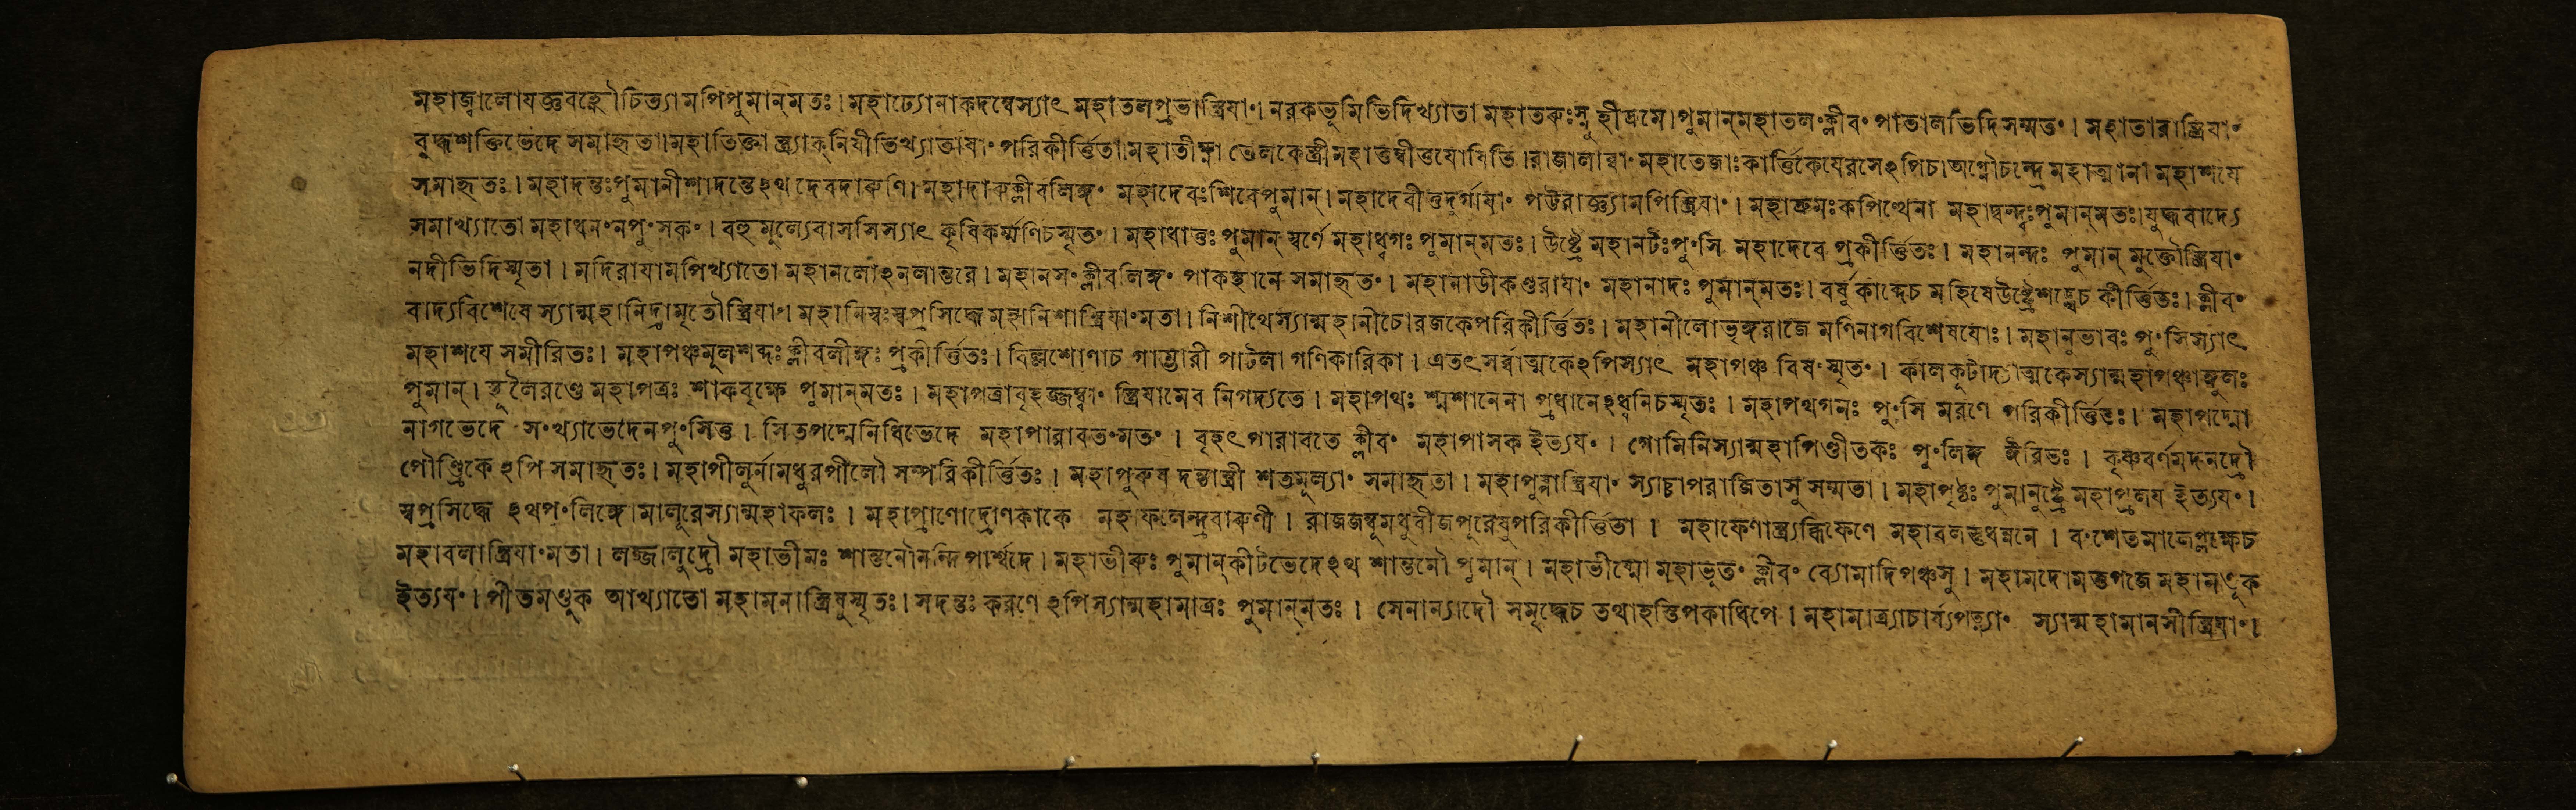 মহাজ্বালোযজ্ঞবহ্নৌচিত্যামপিপুমান্মতঃ। মহাঢ্যোনাকদম্বেস্যাৎ মহাতলপ্রভাস্ত্রিযাং। নরকভূমিভিদিখ্যাতা মহাতরুঃস্নুহীদ্রুমে। পুমান্মহাতলংক্লীবং পাতালভিদিসম্মতং। মহাতারাস্ত্রিযাং
বুদ্ধশক্তিভেদে সমাহৃতা। মহাতিক্তা স্ত্র্যাকনিযীতিখ্যাতাযাং পরিকীর্ত্তিতা। মহাতীক্ষ্ণা ভেলকেস্ত্রীমহাত্তম্বীত্তযোষিতি। রাজালাব্বাং মহাতেজাঃকার্ত্তিকেযেরসেঽপিচ। অগ্নৌচন্দ্রে মহাত্মানা মহাশযে
সমাহৃতঃ। মহাদন্তঃপুমানীশাদন্তেঽথ দেবদারুণি। মহাদারুক্লীবলিঙ্গং মহাদেবঃশিবেপুমান্। মহাদেবীত্তদুর্গাযাং পট্টরাজ্ঞ্যামপিস্ত্রিযাং। মহাদ্রুমঃকপিত্থেনা মহাদ্বন্দ্বঃপুমান্মতঃ। যুদ্ধবাদ্যে
সমাখ্যাতো মহাধনংনপুংসকং। বহুমুল্যেবাসসিস্যাৎ কৃষিকর্ম্মণিচস্মৃতং। মহাধাত্তঃ পুমান্ স্বর্ণে মহাধ্বগঃ পুমান্মতঃ। উষ্ট্রে মহানটঃপুংসি মহাদেবে প্রকীর্ত্তিতঃ। মহানন্দঃ পুমান্ মুক্তৌস্ত্রিযাং
নদীভিদিস্মৃতা। মদিরাযামপিখ্যাতো মহানলোঽনলান্তরে। মহানসংক্লীবলিঙ্গং পাকস্থানে সমাহৃতং। মহানাডীকণ্ডরাযাং মহানাদঃ পুমান্মতঃ। বর্ষুকাব্দেচ মহিষেউষ্ট্রেশঙ্খেচ কীর্ত্তিতঃ। ক্লীবং
বাদ্যবিশেষে স্যান্মহানিদ্রামৃতৌস্ত্রিযাং। মহানিম্বঃস্বপ্রসিদ্ধে মহানিশাস্ত্রিযাংমতা। নিশীথেস্যান্মহানীচোরজকেপরিকীর্ত্তিতঃ। মহানীলোভৃঙ্গরাজে মণিনাগবিশেষযোঃ। মহানুভাবঃ পুংসিস্যাৎ
মহাশযে সমীরিতঃ। মহাপঞ্চমুলশব্দঃ ক্লীবলীঙ্গঃ প্রকীর্ত্তিতঃ। বিল্লশোণাচ গাম্ভারী পাটলা গণিকারিকা। এতৎ সর্ব্বাত্মকেঽপিস্যাৎ মহাপঞ্চ বিষংস্মৃতং। কালকূটাদ্যাত্মকেস্যান্মহাপঞ্চাঙ্গুলঃ
পুমান্। স্থূলৈরণ্ডে মহাপত্রঃ শাকবৃক্ষে পুমান্মতঃ। মহাপত্রাবৃহজ্জম্ব্বাং স্ত্রিযামেব নিগদ্যতে। মহাপথঃ শ্মশানেনা প্রধানেঽধ্বনিচস্মৃতঃ। মহাপথগমঃ পুংসি মরণে পরিকীর্ত্তিতঃ। মহাপদ্মো
নাগভেদে সংখ্যাভেদেনপুংসিত্ত। সিতপদ্মেনিধিভেদে মহাপারাবতংমতং। বৃহৎপারাবতে ক্লীবং মহাপাসক ইত্যযং। গোমিনিস্যান্মহাপিণ্ডীতকঃ পুংলিঙ্গ ঈরিতঃ। কৃষ্ণবর্ণমদনদ্রৌ
পৌণ্ড্রিকে ঽপি সমাহৃতঃ। মহাপীলুর্নামধুরপীলৌ সম্পরিকীর্ত্তিতঃ। মহাপুরুষ দন্তাস্ত্রী শতমুল্যাং সমাহৃতা। মহাপুষ্পাস্ত্রিযাং স্যাচ্চাপরাজিতাসু সম্মতা। মহাপৃষ্ঠঃ পুমানুষ্ট্রে মহাপ্রলয ইত্যযং।
স্বপ্রসিদ্ধে ঽথপুংলিঙ্গে। মালূরেস্যান্মহাফলঃ। মহাপ্রাণোদ্রোণকাকে মহাফলেন্দ্রবারুণী। রাজজম্বূমধুবীজপূরেষুপরিকীর্ত্তিতা। মহাফেণাস্ত্র্যব্ধিফেণে মহাবল বংশেতমালেপ্লক্ষেচ
মহাবলাস্ত্রিযাংমতা। লজ্জালুদ্রৌ মহাভীমঃ শান্তনৌনন্দি পার্শ্বদে। মহাভীরুঃ পুমান্কীটভেদেঽথ শান্তনৌ পুমান্। মহাভীষ্মো মহাভূতং ক্লীবং ব্যোমাদিপঞ্চসু। মহামদোমত্তগজে মহামণ্ডূক
ইত্যযং। পীতমণ্ডূক আখ্যাতো মহামনাস্ত্রিষুস্মৃতঃ। সদন্তঃ করণে ঽপিস্যান্মহামাত্রঃ পুমান্মতঃ। সেনান্যাদৌ সমৃদ্ধেচ তথাহস্তিপকাধিপে। মহামাত্র্যাচার্য্যপত্ন্যাং স্যান্মহামানসীস্ত্রিযাং।